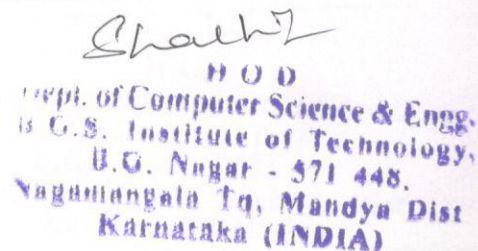 H O D
Dept. of Computer Science & Engg.
G.S. Institute of Technology,
B.G. Nagar - 571 448.
Nagamangala Tq, Mandya Dist
Karnataka (INDIA)